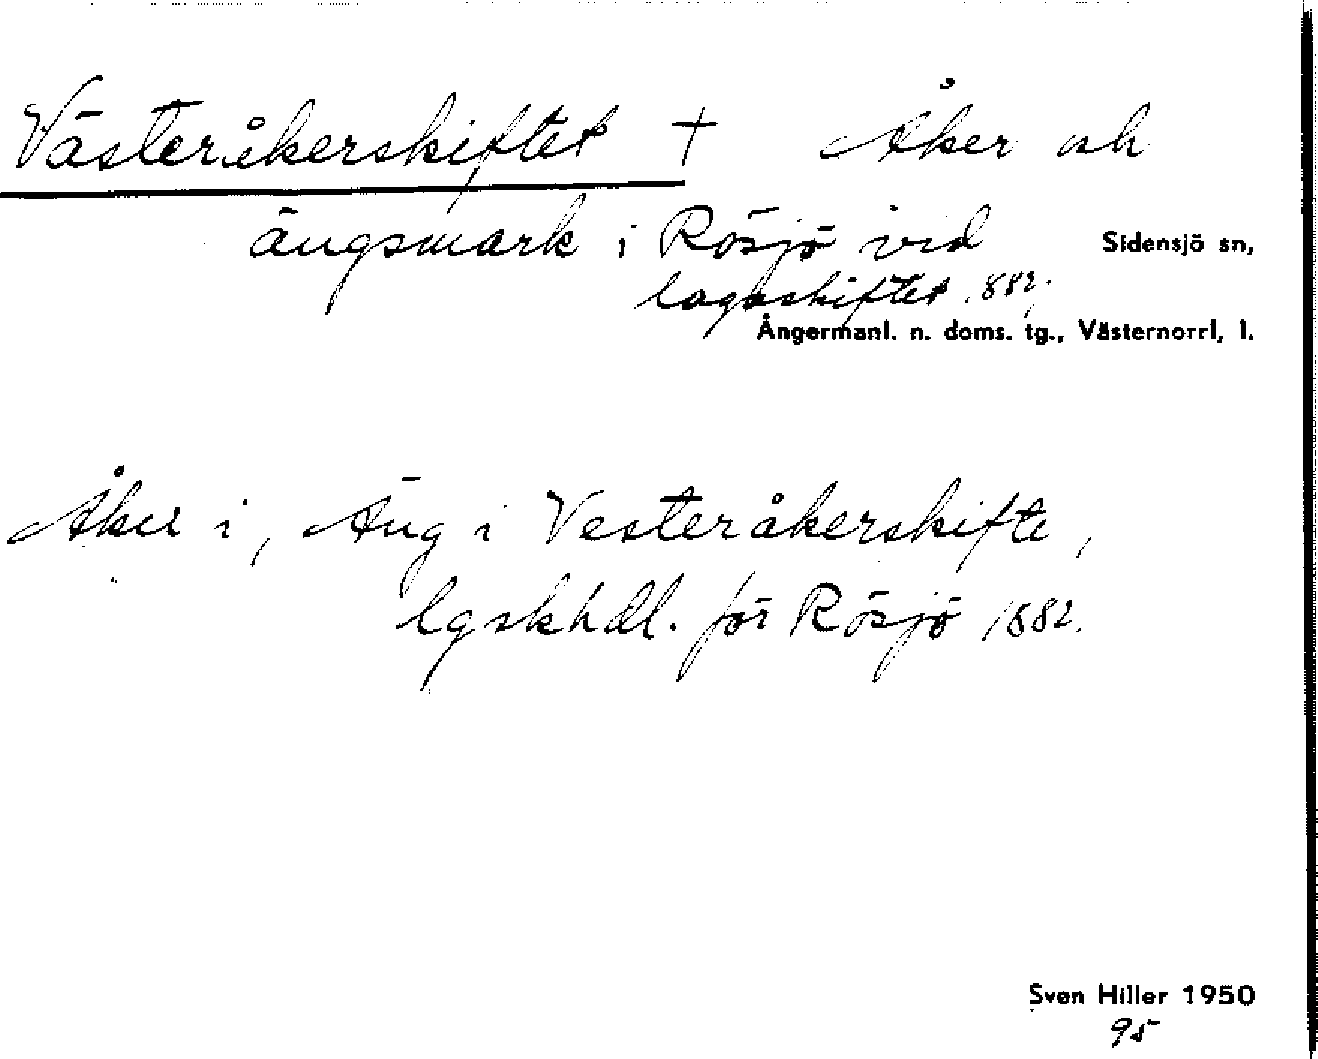 Västeråkerskiftet † Åker och
ängsmark i Rösjö vid
Sidensjö sn,
lagaskiftet 1882.
Ångermanl. n. doms. tg., Västernorrl, l.
Åker i, Äng i Vesteråkerskifte,
lgskhdl. för Rösjö 1882.
Sven Hiller 1950
95